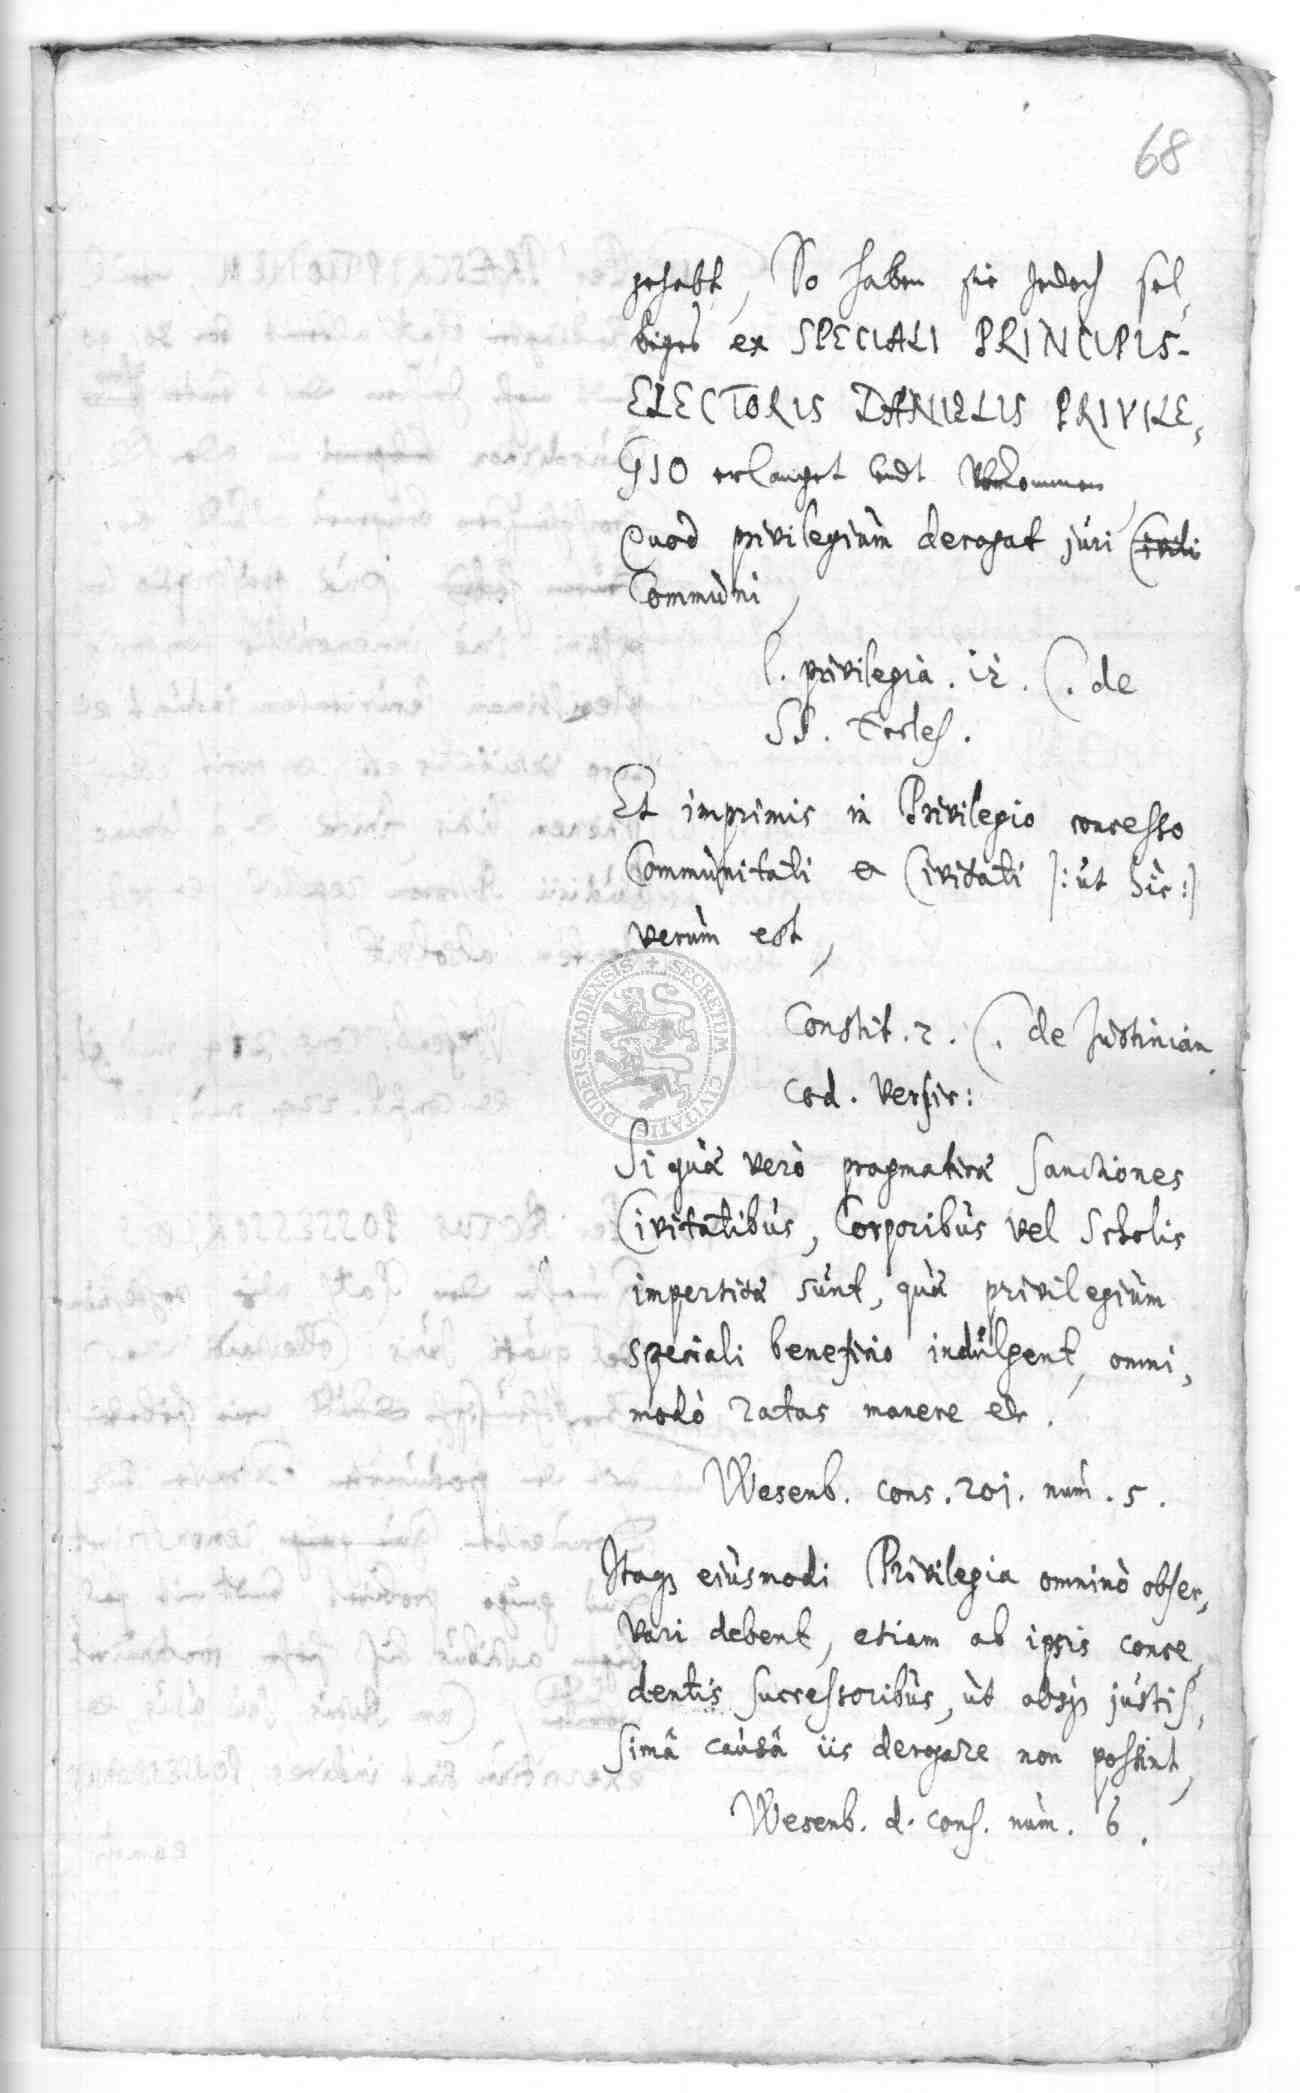 68
gehabt, So haben sie Jedoch sel,
biges ex SPECIALI PRINCIPIS-
ELECTORIS DANIELIS PRIVILE,
GIO erlanget undt bekommen,
Quod privilegium derogat juri Civili
Communi,
l. privilegia. 12. C. de
SS. Eccles.
Et imprimis in Privilegio concesso
Communitati & Civitati |: ut hic :|
verum est,
Constit. 2. C. de Justinian.
cod. versic:
Si quæ verò pragmaticæ Sanctiones
Civitatibus, Corporibus vel Scholis
impertitæ sunt, quæ privilegium
speciali beneficio indulgent, omni,
modò ratas manere etc.
Wesenb. cons. 201. num. 5.
Itaque ejusmodi Privilegia omninò obser,
vari debent, etiam ab ipsis conce,
dentis successoribus, ut absque justis,
simâ causâ iis derogare non possint,
Wesenb. d. cons. num. 6.
SECRETUM CIVITATIS DUDERSTADIENSIS